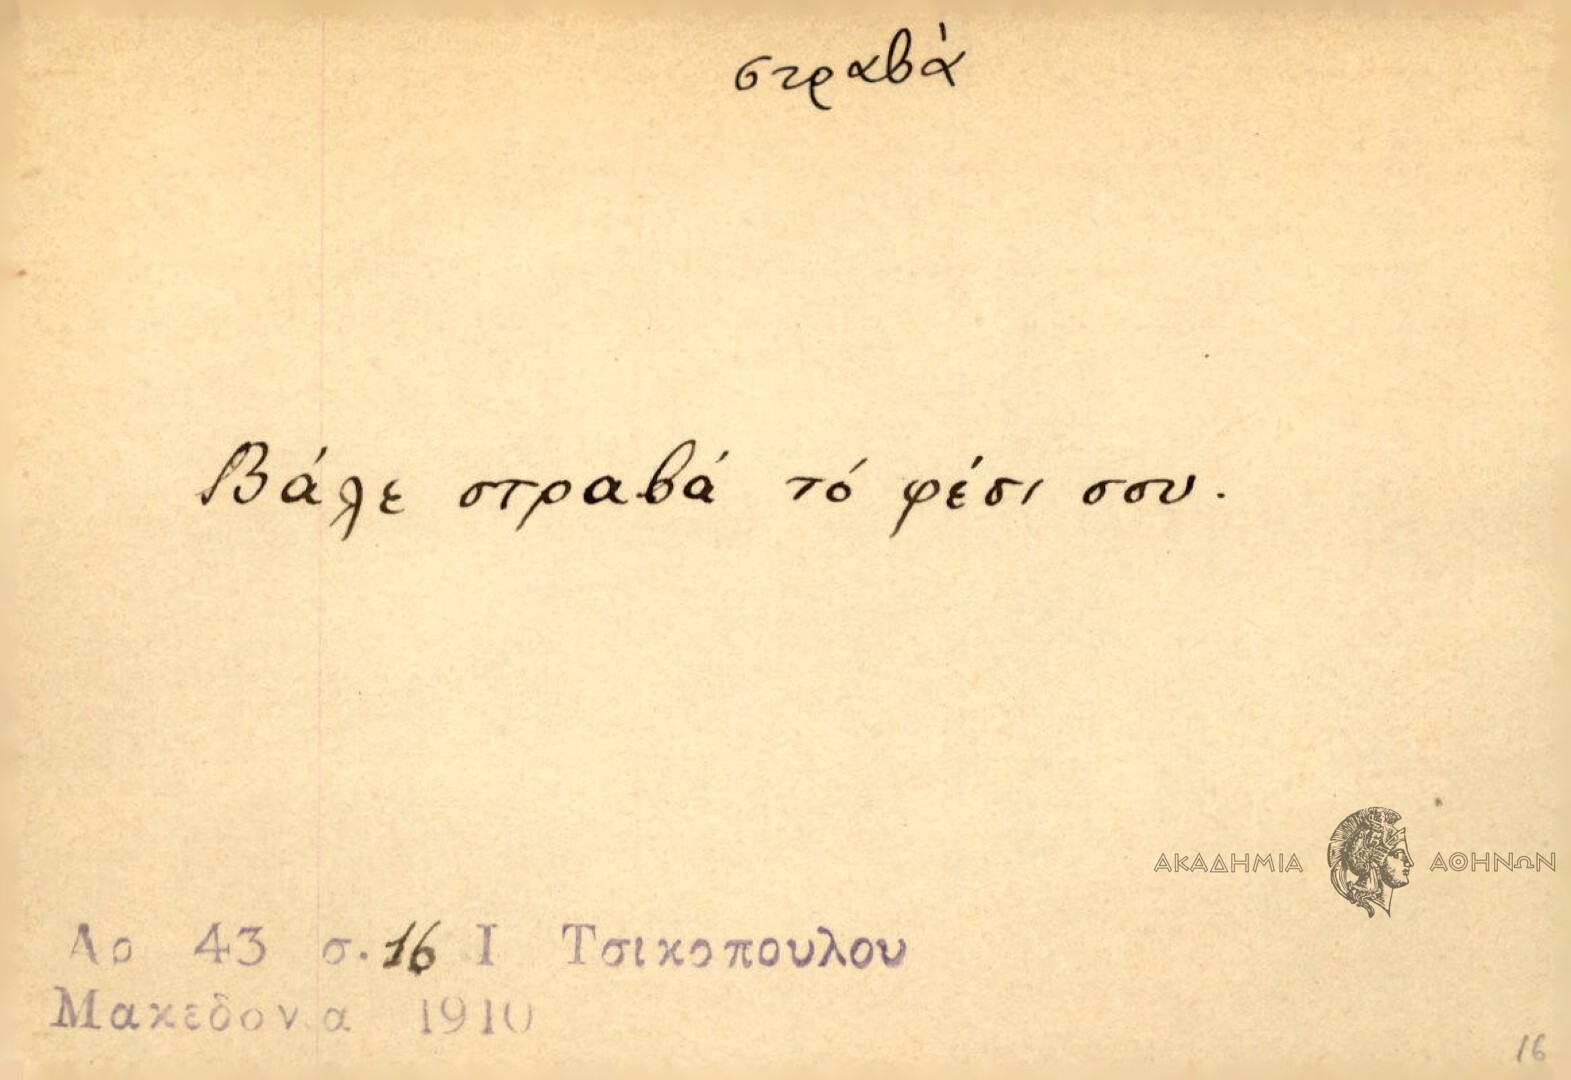 στραβά
Βάλε στραβά τό φέσι σου.
ΑΚΑΔΗΜΙΑ ΑΘΗΝΩΝ
Αρ 43 σ. 16 Ι Τσικοπουλου
Μακεδονια 1910
16